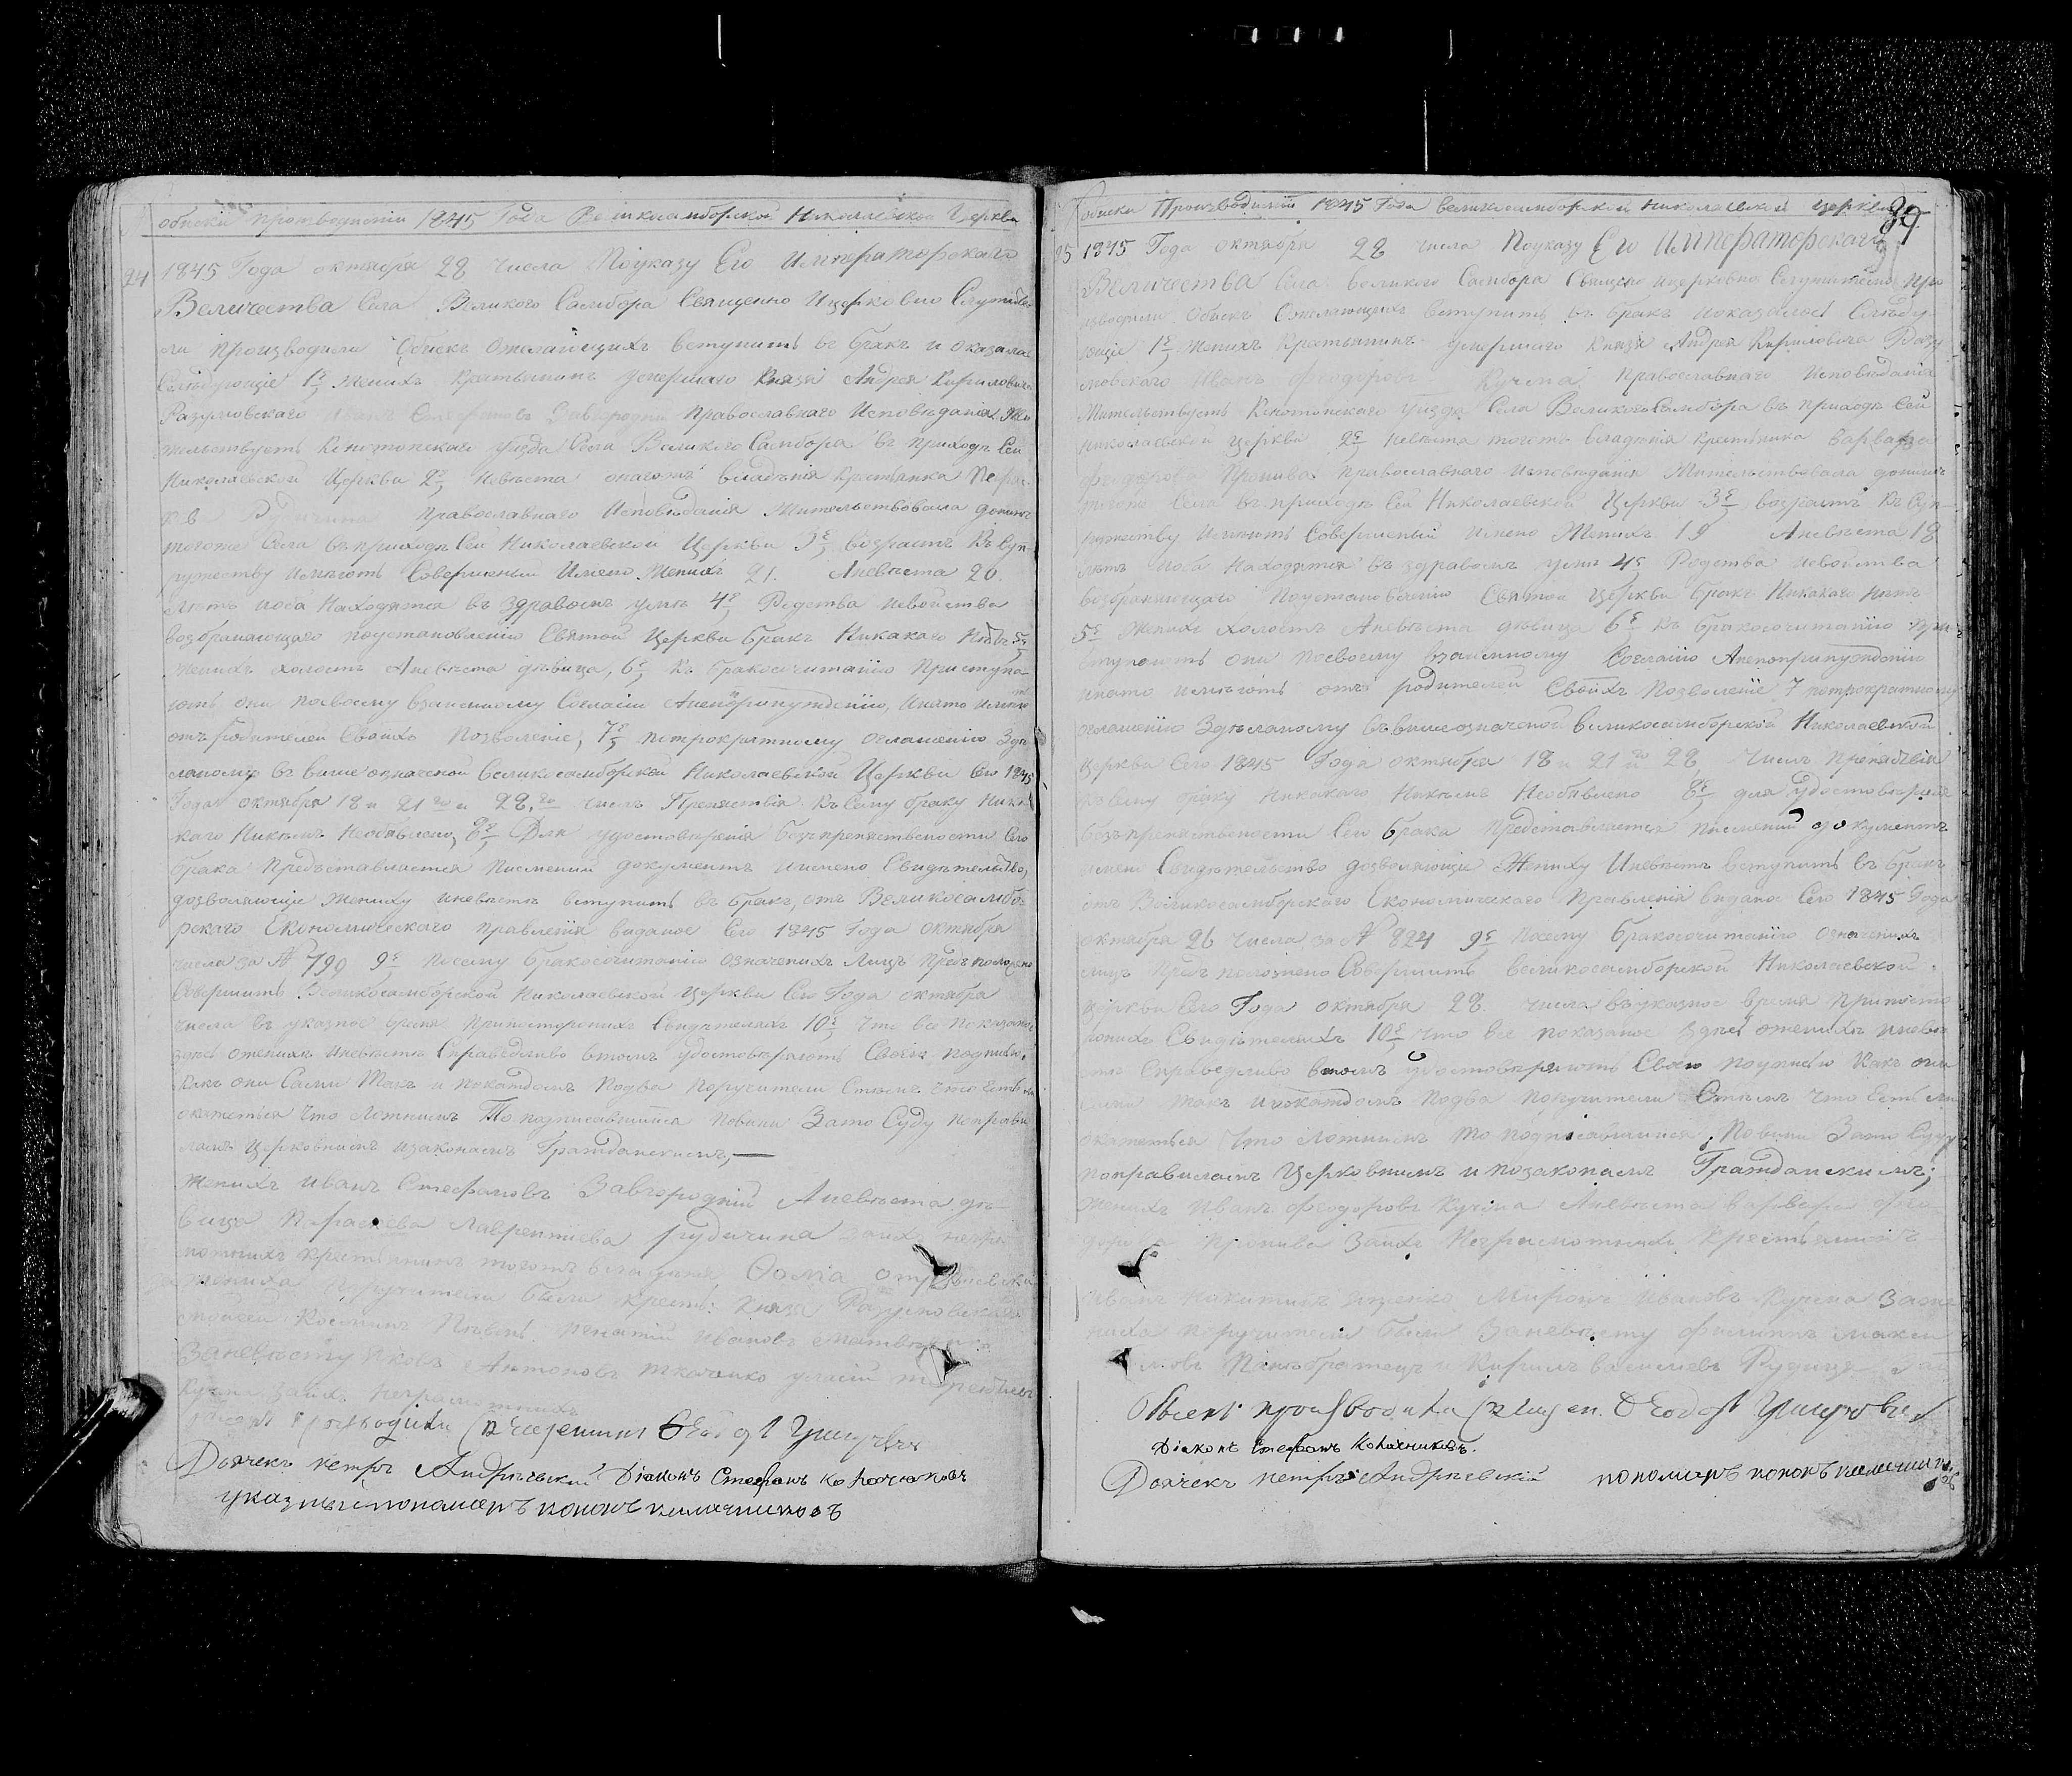 обиски производиміи 1845 Года Великосамборской Николаевской Церкви
24 1845 Года октября 28 числа Поуказу Его Императорскаго
Величества Села Великого Самбора Священно Ицерковно Служите
ли производили Обискъ Ожелающихъ вступить въ бракъ и оказалось
Слѣдующіе 1е Женихъ Крестьянинъ умершаго Князя Андрея Кириловича
Разумовского Иванъ Стефановъ Завгородній православнаго Исповѣданія Жи
тельствуетъ Конотопского уѣзда Села Великого Самбора въ приходѣ Сей
Николаевской Церкви 2е Невѣста онагожъ владѣнія Крестьянка
православнаго Исповѣданія Жительствовала донинѣ
тогоже Села въ приходѣ Сей Николаевской Церкви 3е возрастъ Къ Суп
ружеству имѣютъ Совершеный Имено Женихъ 21. Аневѣста 20.
Лѣтъ иоба Находятся въ здравомъ умѣ 4е Родства Исвойства
возбраняющаго поустановленію Святой Церкви бракъ Никакого Нѣтъ 5е
Женихъ холостъ Аневѣста дѣвица, 6е Къ бракосочитанію Приступа
ютъ они посвоему взаимному Согласію Анепопринужденію, Инато имѣютъ
отъ родителей Своихъ Позволеніе, 7е потрократному оглашенію Здѣ
ланому въ вишеозначеной великосамборской Николаевской Церкви Сего 1845
Года октября 18 и 21 го и 28. го числъ Препятствія Къ Сему браку Ника
каго Никѣмъ Необявлено, 8е Для удостовѣренія безъпрепятствености Сего
брака Предъставляется Писмений документъ имено Свидѣтельство,
дозволяющіе Жениху иневѣстѣ вступить въ бракъ, отъ Великосамбо
рского Економического правленія виданое Сего 1845 Года октября
числа за № 799 9е посему бракосочитанію означенихъ Лицъ Предъположено
Совершить Великосамборской Николаевской церкви Сего Года октября
числа въ указное время припостороніхъ Свидѣтеляхъ 10е Что все показаное
здѣсь ожениху иневѣстѣ Справедливо втомъ удостовѣряютъ Своею подписю.
Какъ они Сами Такъ и покаждомъ Подва Поручители Стѣмъ что Естьли
окажеться Что Ложнимъ То подписавшийся повини Зато Суду Поправи
ламъ Церковнимъ изаконамъ Гражданскимъ,—
Женихъ Иванъ Стефановъ Завгородній Аневѣста дѣ
вица Параскева Лаврентіева рудичина Заихъ негра
мотнихъ крестьянинъ тогожъ владѣнія, Фома
жениха Поручители были крестья: Князя Разумовскаго
Игнатій Ивановъ
Заневѣсту Яковъ Антоновъ ткаченко
Кучма Заихъ Неграмотнихъ
производилъ Священникъ
Дьячекъ Петръ Андріевский Діаконъ Стефанъ
указный пономарь кононъ
обиски Производиміи 1845 Года великосамборской николаевской церкви 89
25 1845 Года октября 28 числа Поуказу Его Императорскаго
Величества Села великого Самбора Священо ицерковно Служители про
изводили Обискъ Ожелающихъ вступить въ бракъ показалось Слѣду
ющіе 1е Женихъ Крестьянинъ умершаго Князя Андрея Кириловича Разу
мовского Иванъ Феодоровъ Кучма православнаго Исповѣданія
Жительствуетъ Конотопского уѣзда Села Великого Самбора въ приходѣ Сей
николаевской церкви 2е Невѣста тогожъ владѣнія крестьянка варвара
Феодорова Пронива православнаго исповѣданія Жительствовала донинѣ
тогожъ Села въ приходѣ Сей Николаевской Церкви 3е возрастъ Къ Суп
ружеству Имѣютъ Совершеный Имено Женихъ 19 Аневѣста 18
лѣтъ иоба Находятся въ здравомъ умѣ 4е Родства исвойства
возбраняющаго Поустановленію Святой Церкви бракъ Никакого Нѣтъ
5е Женихъ холостъ Аневѣста дѣвица 6е къ бракосочитанію при
ступаютъ они посвоему взаимному Согласію Анепопринужденію
инато имѣютъ отъ родителей Своихъ Позволеніе 7 потрократному
оглашенію Здѣланому въ вишеозначеной великосамборской Николаевской
церкви Сего 1845 Года октября 18 и 21 го и 28 числъ Препятствія
Къ Сему браку Никакого Никѣмъ Необявлено 8е для удостовѣренія
безъпрепятственности Сего брака Представляется писмений документъ
имено Свидѣтельство дозволяющіе Жениху Иневѣстѣ вступить въ бракъ
отъ Великосамборского Економического Правленія виданое Сего 1845 Года
октября 26 числа за № 824 9е посему бракосочитанію означенихъ
лицъ предъположено Совершить великосамборской Николаевской
церкви Сего Года октября 28 числа въ указное время припосто
роніхъ Свидѣтеляхъ 10е Что все показаное здѣсь оженихѣ иневѣ
стѣ Справедливо втомъ удостовѣряютъ Своею подписю Какъ они
Сами Такъ ипокаждомъ подва поручители Стѣмъ Что Естьли
окажеться Что Ложнимъ то подписавшийся, Повини Зато Суду
поправиламъ Церковнимъ и позаконамъ Гражданскимъ;
Женихъ Иванъ Феодоровъ Кучма Аневѣста варвара Фео
дорова Пронива Заихъ Неграмотнихъ Крестьянинъ
Миронъ Ивановъ Кучма Заже
ниха поручители были Заневѣсту Филипъ Макси
мовъ Панибратецъ и Кирилъ василіевъ Рудица
Обыскъ производилъ Священ.
Діаконъ Стефанъ
Дьячекъ Петръ Андріевский пономарь кононъ